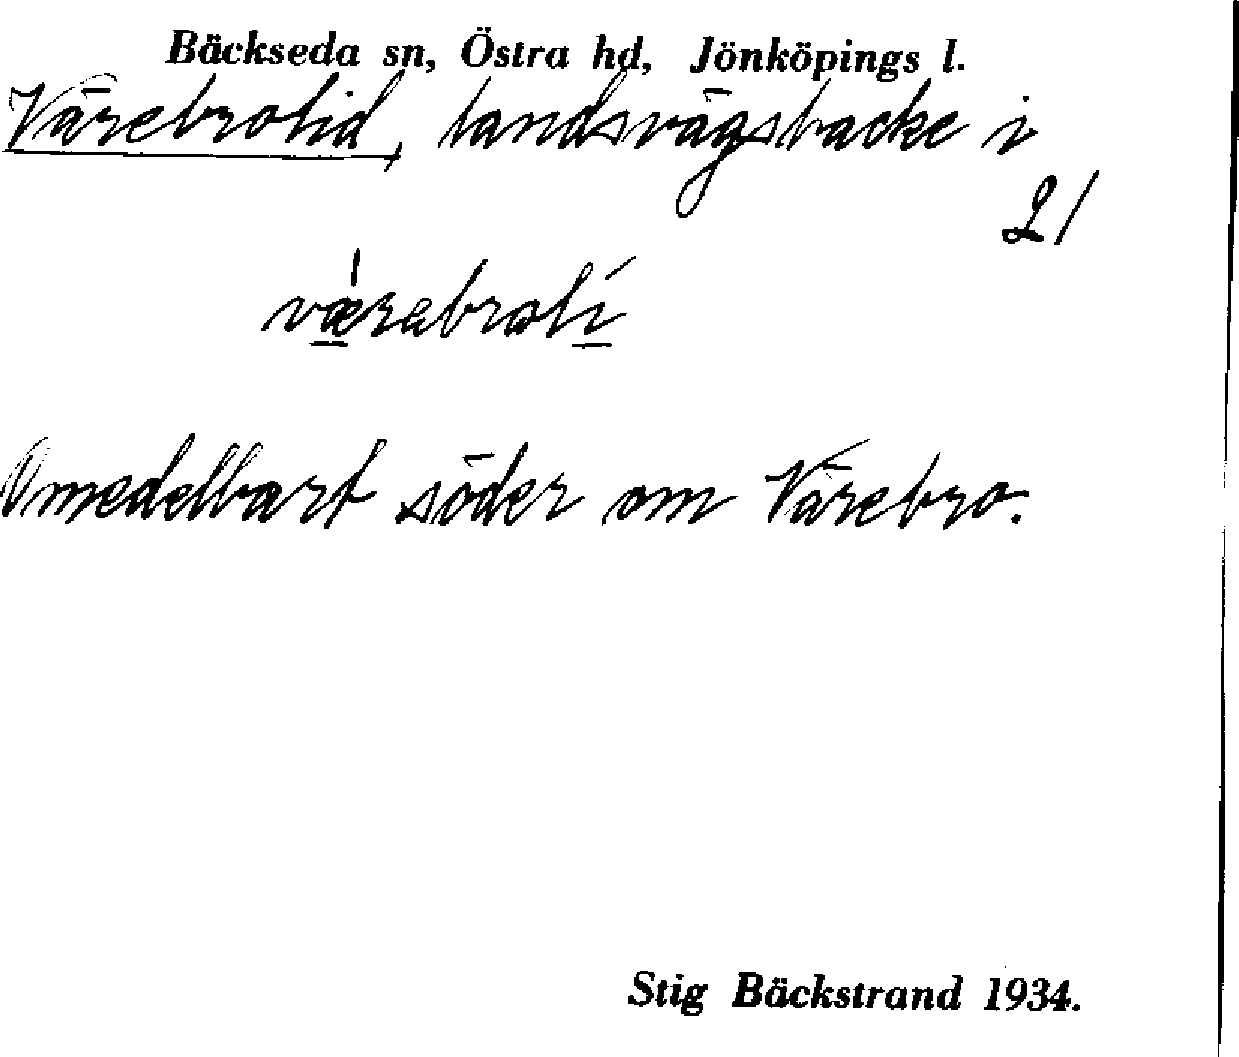 Bäckseda sn, Östra hd, Jönköpings l.
Värebrolid, landsvägsbacke i
21
vǽ̱rabrolí̱
Omedelbart söder om Värebro.
Stig Bäckstrand 1934.